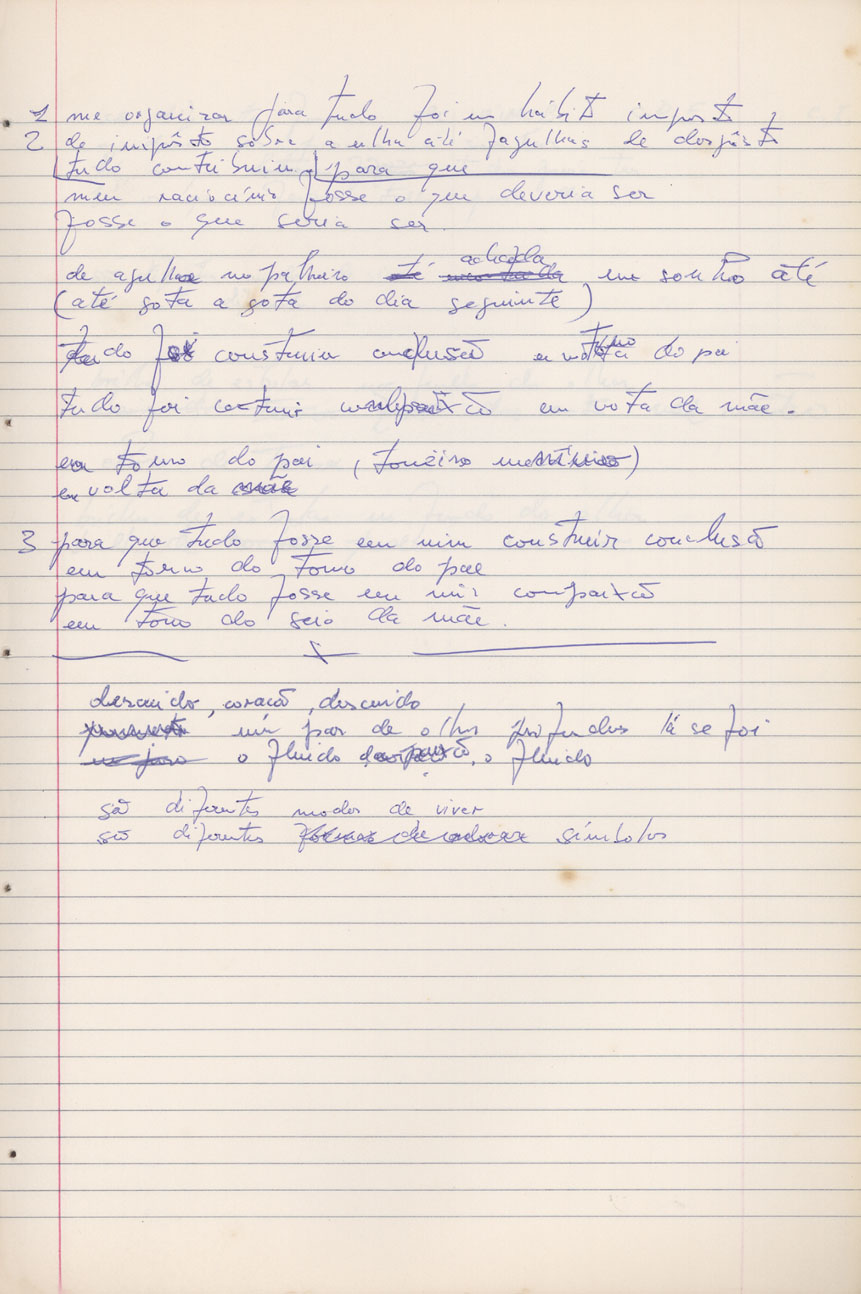 1 me organizar para tudo foi um hábito imposto
2 de impôsto sôbre a até fagulhas de desgôsto
tudo contribuiu para que
meu raciocínio fosse o que deveria ser
fosse o que seria ser
de agulha no palheiro até achada em sonho até
(até gota a gota do dia seguinte)
tudo foi construir conclusão em torno do pai
tudo foi construir compaixão em volta da mãe.
em torno do pai (torneiro mecânico)
em volta da mãe
3 para que tudo fosse em mim construir conclusão
em torno do torno do pai
para que tudo fosse em mim compaixão
em torno do seio da mãe.
descuido, coração, descuido
um par de olhos profundos lá se foi
o fluido, compaixão, o fluido
são diferentes modos de viver
são diferentes formas de adorar símbolos